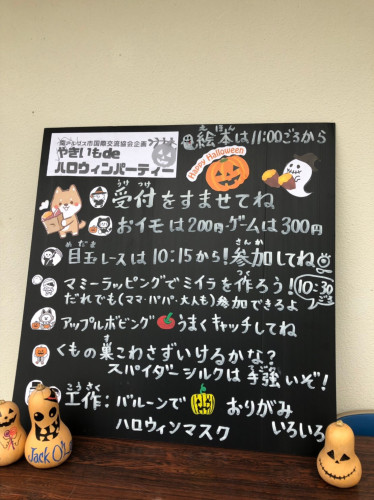 南アルプス市国際交流協会企画
やきいもde
ハロウィンパーティー
Happy Halloween
えほん
絵本は11:00ごろから
うけつけ
受付をすませてね
おイモは200円・ゲームは300円
めだま さんか
目玉レースは10:15から!参加してね
つく
マミーラッピングでミイラを作ろう!
10:30
だれでも(ママ・パパ・大人も)参加できるよ
アップルボビング うまくキャッチしてね
す
くもの巣こわさずいけるかな?
てごわ
スパイダーシルクは手強いぞ!
こうさく
工作:バルーンで おりがみ
ハロウィンマスク いろいろ
Jack O'L